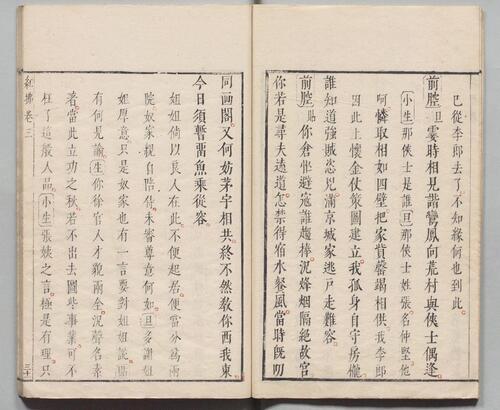 已從李郎去了不知緣何也到此
前腔旦霎時相見諧鸞鳳向荒村與俠士偶逢
小生那俠士是誰旦那俠士姓張名仲堅他
可憐取相如四壁把家貲罄竭相供我李郎
因此上懷金仗策圖建立我孤身自守房櫳
誰知道強賊恣兇滿京城家逃戶走難容
前腔貼你倉忙避寇誰趨捧況烽烟隔絶故宮
你若是尋夫遠道怎禁得宿水餐風當時旣叨
同画閣又何妨茅宇相共終不然教你西我東
今日須暫畱魚乘從容
姐姐倘以良人在此不便起居便當分爲兩
院奴家親自陪侍未審尊意何如旦多謝姐
姐厚意只是奴家也有一言要對姐姐說貼
有何見諭生你徐官人才貌兩全況聲名素
著當此立功之秋若不出去圖些事業可不
枉了這般人品小生張姨之言極是有理只
紅拂卷三
三十